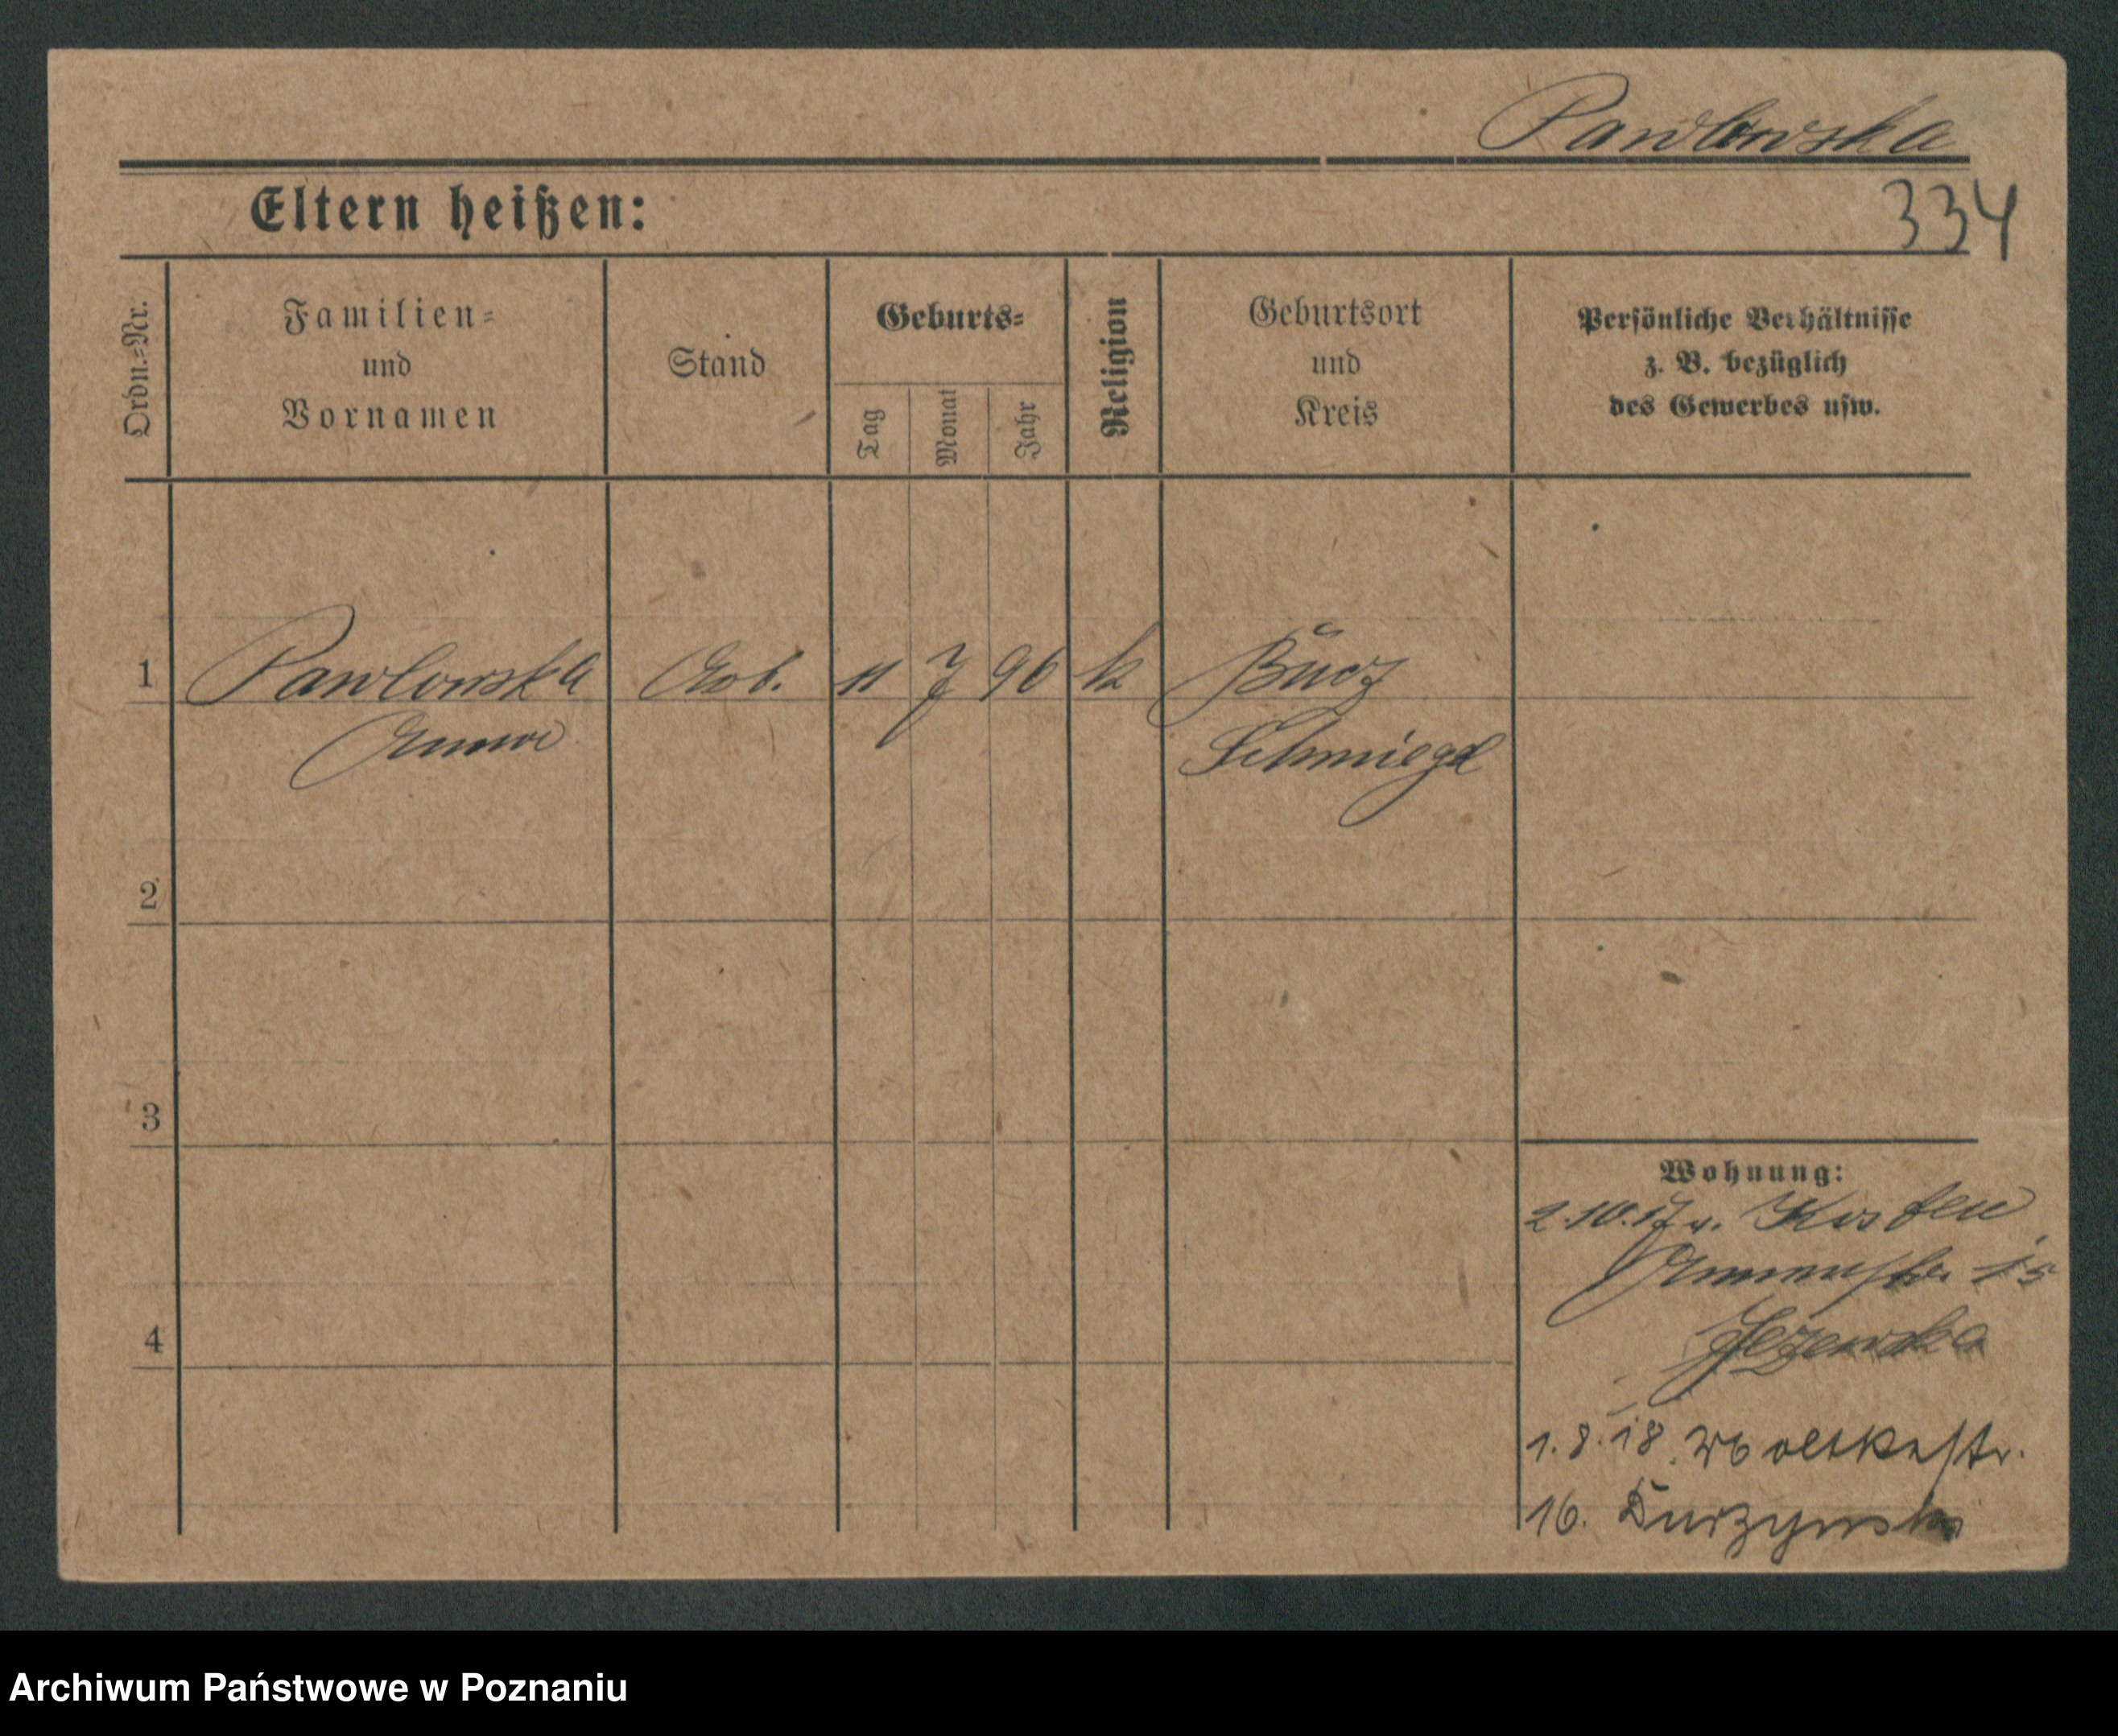 Pawlowska
334
Eltern heißen:
Ordn.=Nr.
Familien=
und
Vornamen
Stand
Geburts=
Tag
Monat
Jahr
Religion
Geburtsort
und
Kreis
Persönliche Verhältnisse
z. B. bezüglich
des Gewerbes usw.
1 Pawlowska Arb. 11 7 96 k Bucz
Anna Schmiegel
2
3
Wohnung:
2.10.17 v. Kosten
Annenstr. 15
Jezewska
4
1.8.18. Moltkestr.
16. Kurzynski
Archiwum Państwowe w Poznaniu